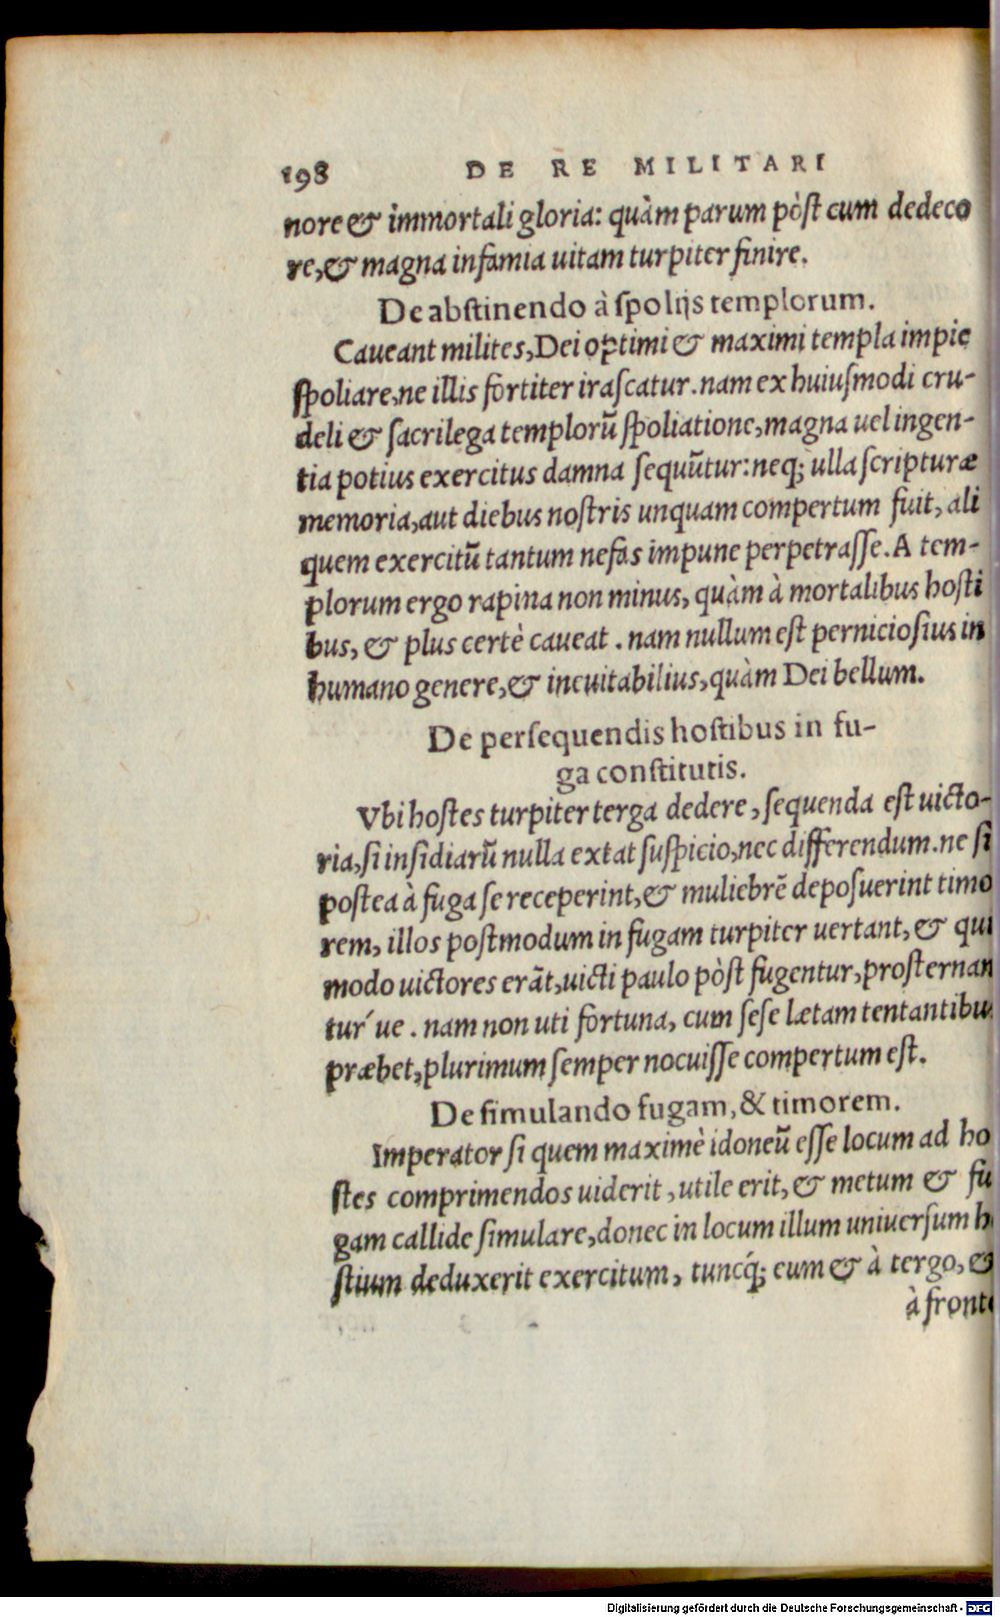 198 DE RE MILITARI
nore & immortali gloria: quàm parum pòst cum dedeco
re, & magna infamia uitam turpiter finire.
De abstinendo à spolijs templorum.
Caueant milites, Dei optimi & maximi templa impie
spoliare, ne illis fortiter irascatur. nam ex huiusmodi cru-
deli & sacrilega templorũ spoliatione, magna uel ingen-
tia potius exercitus damna sequũtur: neq; ulla scripturæ
memoria, aut diebus nostris unquam compertum fuit, ali
quem exercitũ tantum nefas impune perpetrasse. A tem-
plorum ergo rapina non minus, quàm à mortalibus hosti
bus, & plus certè caueat. nam nullum est perniciosius in
humano genere, & ineuitabilius, quàm Dei bellum.
De persequendis hostibus in fu-
ga constitutis.
Vbi hostes turpiter terga dedere, sequenda est uicto-
ria, si insidiarũ nulla extat suspicio, nec differendum. ne si
postea à fuga se receperint, & muliebrẽ deposuerint timo
rem, illos postmodum in fugam turpiter uertant, & qui
modo uictores erãt, uicti paulo pòst fugentur, prosternan
tur´ue. nam non uti fortuna, cum sese lætam tentantibu
præbet, plurimum semper nocuisse compertum est.
De simulando fugam, & timorem.
Imperator si quem maximè idoneũ esse locum ad ho
stes comprimendos uiderit, utile erit, & metum & fu
gam callide simulare, donec in locum illum uniuersum h
stium deduxerit exercitum, tuncq́; eum & à tergo, &
à fronte
Digitalisierung gefördert durch die Deutsche Forschungsgemeinschaft - DFG